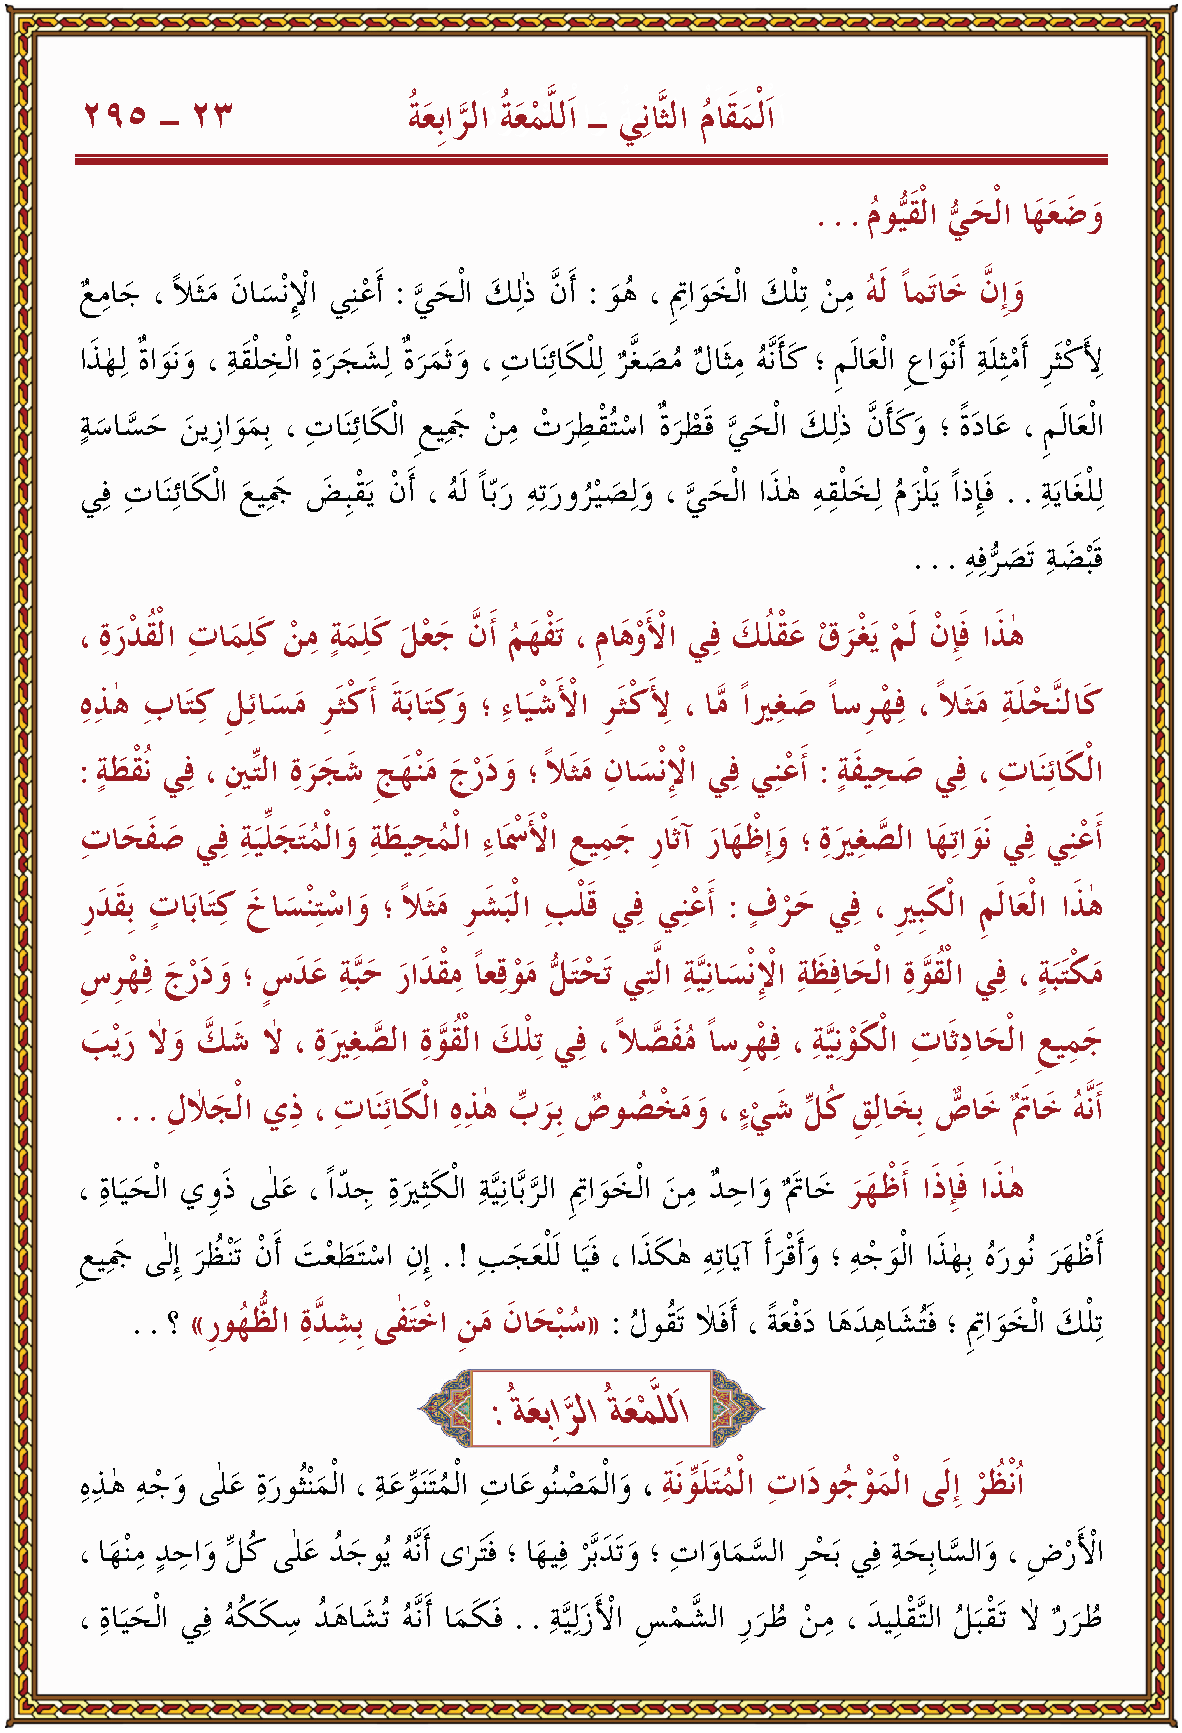 اَلْمَقَامُ الثَّانِي - اَللَّمْعَةُ الرَّابِعَةُ ٢٣ - ٢٩٥
وَضَعَهَا الْحَيُّ الْقَيُّومُ . . .
وَإِنَّ خَاتَماً لَهُ مِنْ تِلْكَ الْخَوَاتِمِ ، هُوَ : أَنَّ ذٰلِكَ الْحَيَّ : أَعْنِي الْإِنْسَانَ مَثَلاً ، جَامِعٌ
لِأَكْثَرِ أَمْثِلَةِ أَنْوَاعِ الْعَالَمِ ؛ كَأَنَّهُ مِثَالٌ مُصَغَّرٌ لِلْكَائَنِاتِ ، وَثَمَرَةٌ لِشَجَرَةِ الْخِلْقَةِ ، وَنَوَاةٌ لِهٰذَا
الْعَالَمِ ، عَادَةً ؛ وَكَأَنَّ ذٰلِكَ الْحَيَّ قَطْرَةٌ اسْتُقْطِرَتْ مِنْ جَمِيعِ الْكَائَنِاتِ ، بِمَوَازِينَ حَسَّاسَةٍ
لِلْغَايَةِ . . فَإِذاً يَلْزَمُ لِخَلْقِهِ هٰذَا الْحَيَّ ، وَلِصَيْرُورَتِهِ رَبّاً لَهُ ، أَنْ يَقْبِضَ جَمِيعَ الْكَائَنِاتِ فِي
قَبْضَةِ تَصَرُّفِهِ . . .
هٰذَا فَإِنْ لَمْ يَغْرَقْ عَقْلُكَ فِي الْأَوْهَامِ ، تَفْهَمُ أَنَّ جَعْلَ كَلِمَةٍ مِنْ كَلِمَاتِ الْقُدْرَةِ ،
كَالنَّحْلَةِ مَثَلاً ، فِهْرِساً صَغِيراً مَّا ، لِأَكْثَرِ الْأَشْيَاءِ ؛ وَكِتَابَةَ أَكْثَرِ مَسَائلِ كِتَابِ هٰذِهِ
الْكَائَنِاتِ ، فِي صَحِيفَةٍ : أَعْنِي فِي الْإِنْسَانِ مَثَلاً ؛ وَدَرْجَ مَنْهَجِ شَجَرَةِ التِّينِ ، فِي نُقْطَةٍ :
أَعْنِي فِي نَوَاتِهَا الصَّغِيرَةِ ؛ وَإِظْهَارَ آثَارِ جَمِيعِ الْأَسْمَاءِ الْمُحِيطَةِ وَالْمُتَجَلِّيَةِ فِي صَفَحَاتِ
هٰذَا الْعَالَمِ الْكَبِيرِ ، فِي حَرْفٍ : أَعْنِي فِي قَلْبِ الْبَشَرِ مَثَلاً ؛ وَاسْتِنْسَاخَ كِتَابَاتٍ بِقَدَرِ
مَكْتَبَةٍ ، فِي الْقُوَّةِ الْحَافِظَةِ الْإِنْسَانِيَّةِ الَّتِي تَحْتَلُّ مَوْقِعاً مِقْدَارَ حَبَّةِ عَدَسٍ ؛ وَدَرْجَ فِهْرِسِ
جَمِيعِ الْحَادِثَاتِ الْكَوْنِيَّةِ ، فِهْرِساً مُفَصَّلاً ، فِي تِلْكَ الْقُوَّةِ الصَّغِيرَةِ ، لٰا شَكَّ وَلٰا رَيْبَ
أَنَّهُ خَاتَمٌ خَاصٌّ بِخَالِقِ كُلِّ شَيْءٍ ، وَمَخْصُوصٌ بِرَبِّ هٰذِهِ الْكَائَنِاتِ ، ذِي الْجَلٰالِ . . .
هٰذَا فَإِذَا أَظْهَرَ خَاتَمٌ وَاحِدٌ مِنَ الْخَوَاتِمِ الرَّبَّانِيَّةِ الْكَثِيرَةِ جِدّاً ، عَلٰى ذَوِي الْحَيَاةِ ،
أَظْهَرَ نُورَهُ بِهٰذَا الْوَجْهِ ؛ وَأَقْرَأَ آيَاتِهِ هٰكَذَا ، فَيَا لَلْعَجَبِ ! . إِنِ اسْتَطَعْتَ أَنْ تَنْظُرَ إِلٰى جَمِيعِ
تِلْكَ الْخَوَاتِمِ ؛ فَتُشَاهِدَهَا دَفْعَةً ، أَفَلٰا تَقُولُ : «سُبْحَانَ مَنِ اخْتَفٰى بِشِدَّةِ الظُّهُورِ» ؟ . .
اَللَّمْعَةُ الرَّابِعَةُ :
اُنْظُرْ إِلَى الْمَوْجُودَاتِ الْمُتَلَوِّنَةِ ، وَالْمَصْنُوعَاتِ الْمُتَنَوِّعَةِ ، الْمَنْثُورَةِ عَلٰى وَجْهِ هٰذِهِ
الْأَرْضِ ، وَالسَّابِحَةِ فِي بَحْرِ السَّمَاوَاتِ ؛ وَتَدَبَّرْ فِيهَا ؛ فَتَرٰى أَنَّهُ يُوجَدُ عَلٰى كُلِّ وَاحِدٍ مِنْهَا ،
طُرَرٌ لٰا تَقْبَلُ التَّقْلِيدَ ، مِنْ طُرَرِ الشَّمْسِ الْأَزَلِيَّةِ . . فَكَمَا أَنَّهُ تُشَاهَدُ سِكَكُهُ فِي الْحَيَاةِ ،